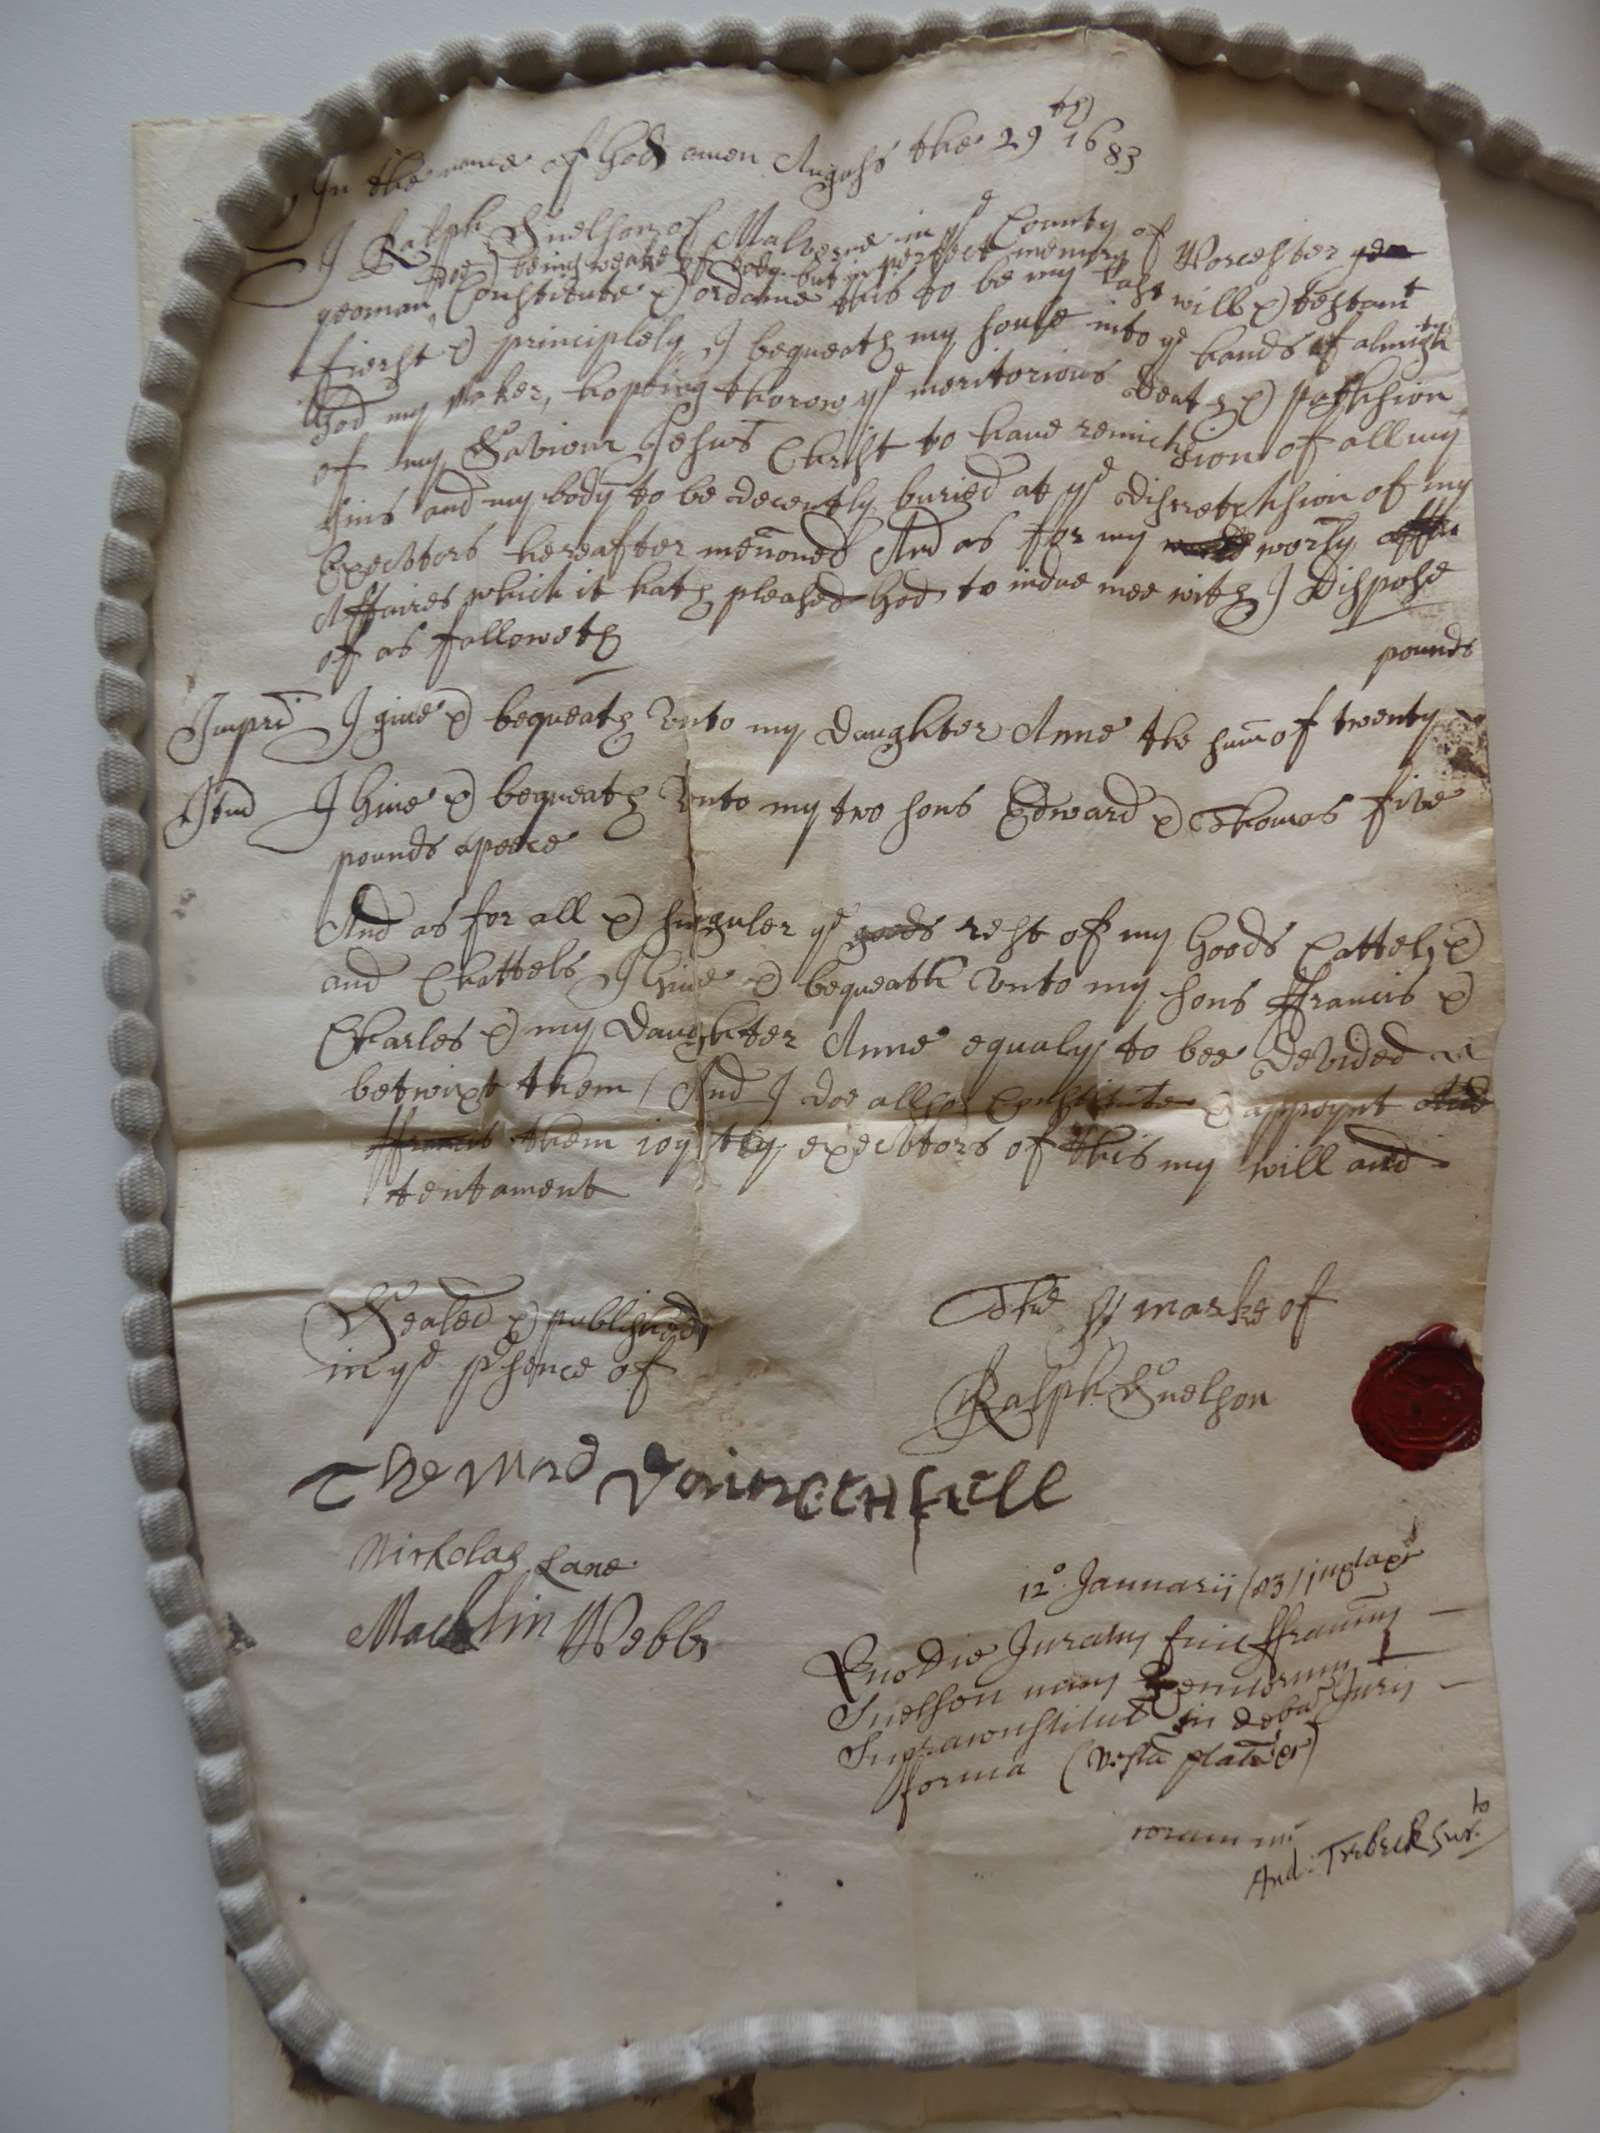 In the name of God amen August the 29th 1683
I Ralph Snelson of Malverne in ye County of Worcester yeo
being weake of body but in perfect memory
yeoman doe Constitute & ordaine this to be my last will & testamt
fierst & principlely I bequeath my soule into ye hands of almighty
God my Maker, hopting thorow ye meritorious Death & passhion
of my Saviour Jesus Christ to have remichsion of all my
sins and my body to be decently buried at ye Dishretchsion of my
Execvtors hereafter mētioned And as for my worly
Affaires which it hath pleased God to indue mee with I Dispose
of as followeth
pounds
Impris I give & bequeath Vnto my Daughter Anne the sum̄ of twenty
Itm̄ I Give & bequeath Vnto my two sons Edward & Thomas five
pounds apeece
And as for all & singuler ye goods rest of my Goods Cattels &
and Chattels I Give & bequeath Vnto my sons ffrancis &
Charles & my Daughter Anne equaly to bee Devided
betwixt them / And I doe allso Constitute & appoynt And
ffrancis them ioyntly execvtors of this my will and
tentament
Sealed & published
in ye psence of
The marke of
Ralph Snelson
Thomas
Nicholas Lane
Macklin Webb
12o Januarij (83) juxta &c
Quo Die Juratus fuit ffranciscus
Snelson unus Executorum
Supraconstitut in debita Juris
forma (vestā plateā &c)
coram me
And: Trebeck Surto